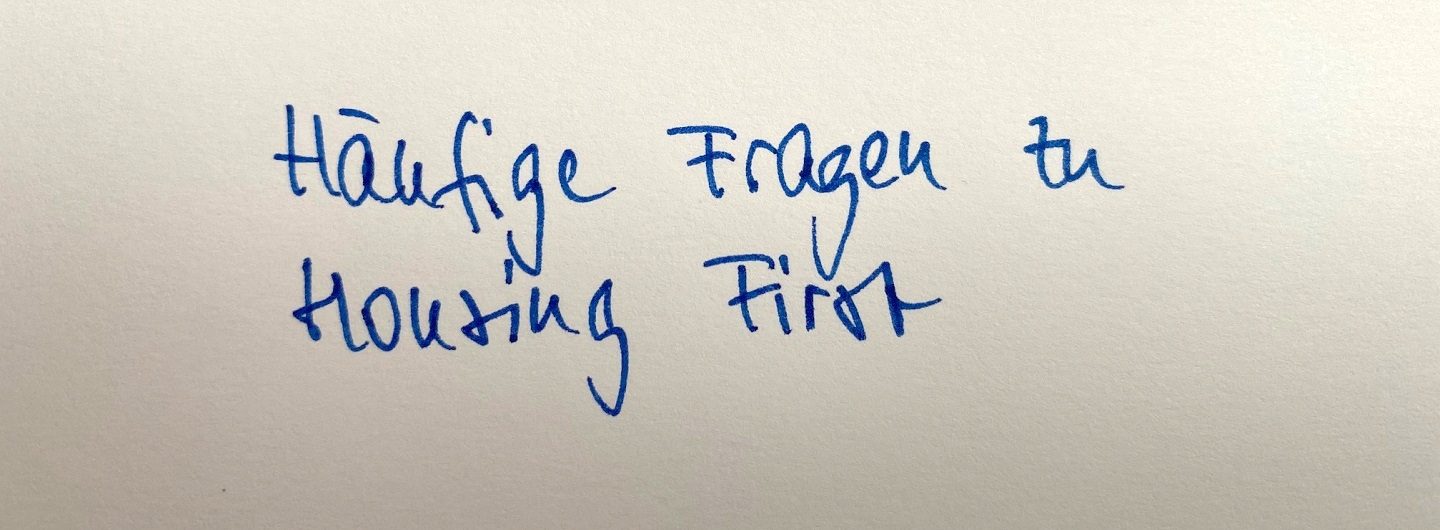 Häufige Fragen zu
Housing First